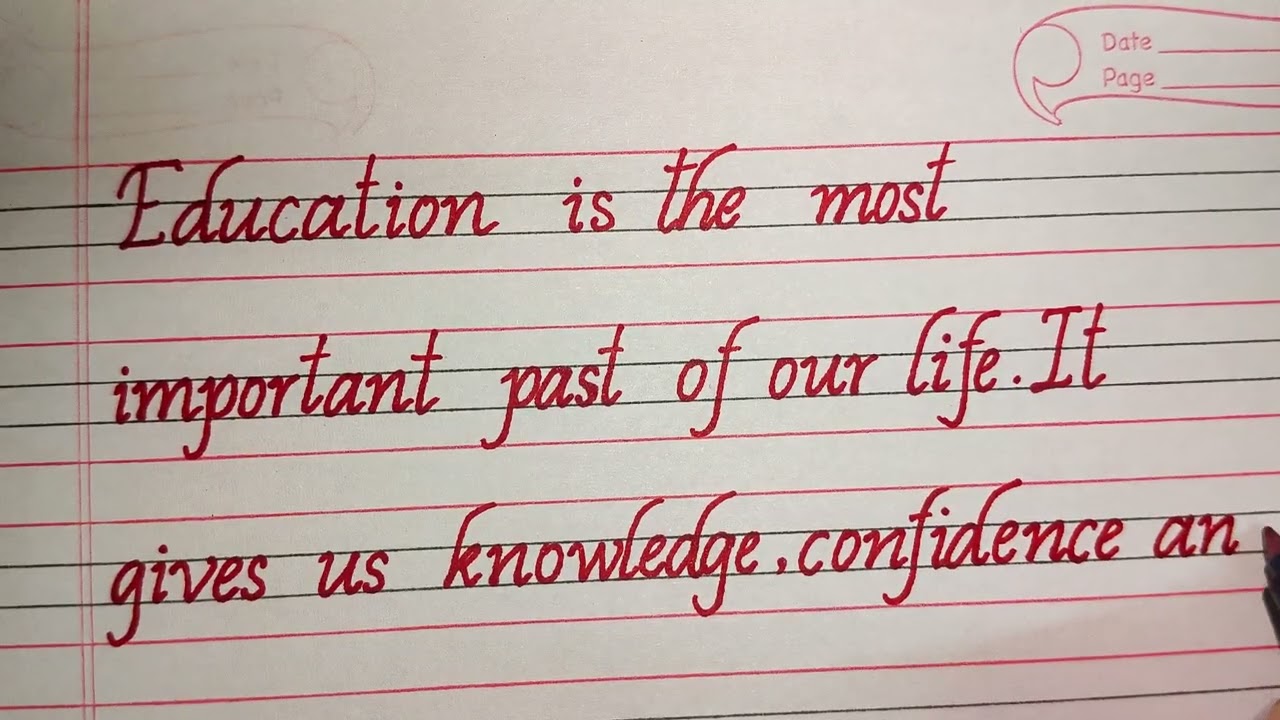 Date
Page
Education is the most
important past of our life. It
gives us knowledge, confidence an